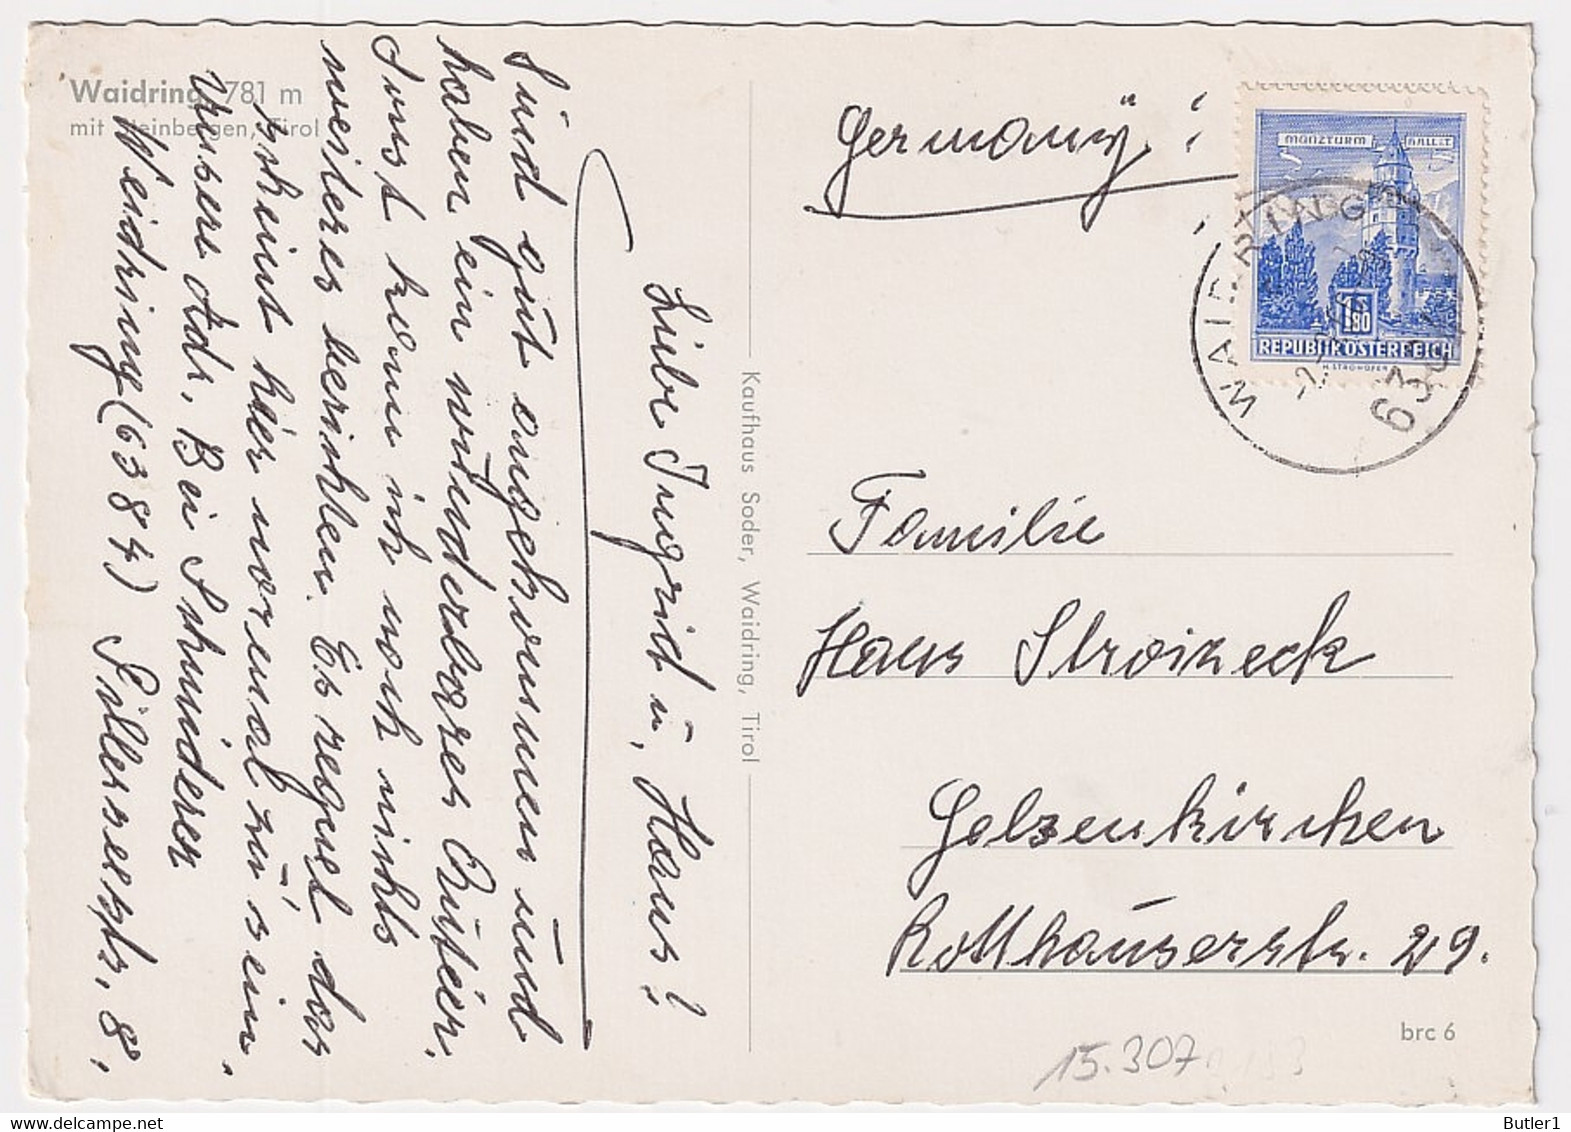 Waidring 781 m
mit Steinbergen, Tirol
Liebe Ingrid u, Hans!
Sind gut angekommen und
haben ein wunderbares Quatier.
Sonst kann ich noch nichts
weiteres berichten. Es regnet das
scheint hier normal zu sein.
Unsere Adr. Bei Schmiderer
Weidring (6384)
8.
Kaufhaus Soder, Waidring, Tirol
Germany!
MÜNZTURM HALL i.T.
1.80
REPUBLIK ÖSTERREICH
H. STROHOFER
WAIDRING
6384
Familie
Hans Stroizeck
Gelsenkirchen
Rotthauserstr. 29.
brc 6
15.307
Butler1